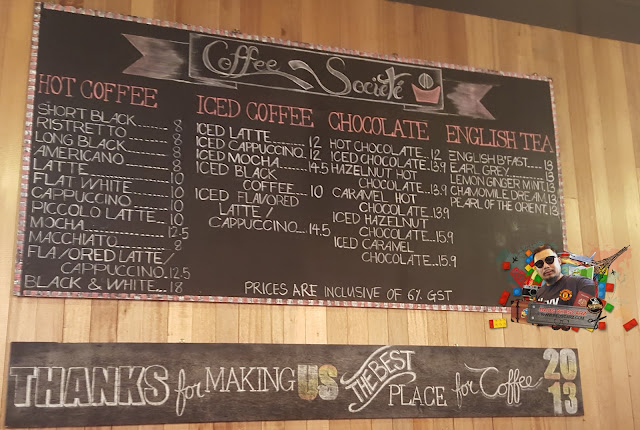 Coffee Societé
HOT COFFEE
SHORT BLACK.......8
RISTRETTO.......8
LONG BLACK.......8
AMERICANO.......8
LATTE.......10
FLAT WHITE.......10
CAPPUCCINO.......10
PICCOLO LATTE....10
MOCHA.......12.5
MACCHIATO.......8
FLAVORED LATTE/
CAPPUCCINO..12.5
BLACK & WHITE...18
ICED COFFEE
ICED LATTE.......12
ICED CAPPUCCINO.12
ICED MOCHA.......14.5
ICED BLACK
COFFEE....10
ICED FLAVORED
LATTE/
CAPPUCCINO....14.5
CHOCOLATE
HOT CHOCOLATE.12
ICED CHOCOLATE.13.9
HAZELNUT HOT
CHOCOLATE.13.9
CARAMEL HOT
CHOCOLATE.13.9
ICED HAZELNUT
CHOCOLATE...15.9
ICED CARAMEL
CHOCOLATE...15.9
ENGLISH TEA
ENGLISH B'FAST...13
EARL GREY.......13
LEMON GINGER MINT.13
CHAMOMILE DREAM.13
PEARL OF THE ORIENT.13
PRICES ARE INCLUSIVE OF 6% GST
THANKS for MAKING US THE BEST PLACE for Coffee 2013